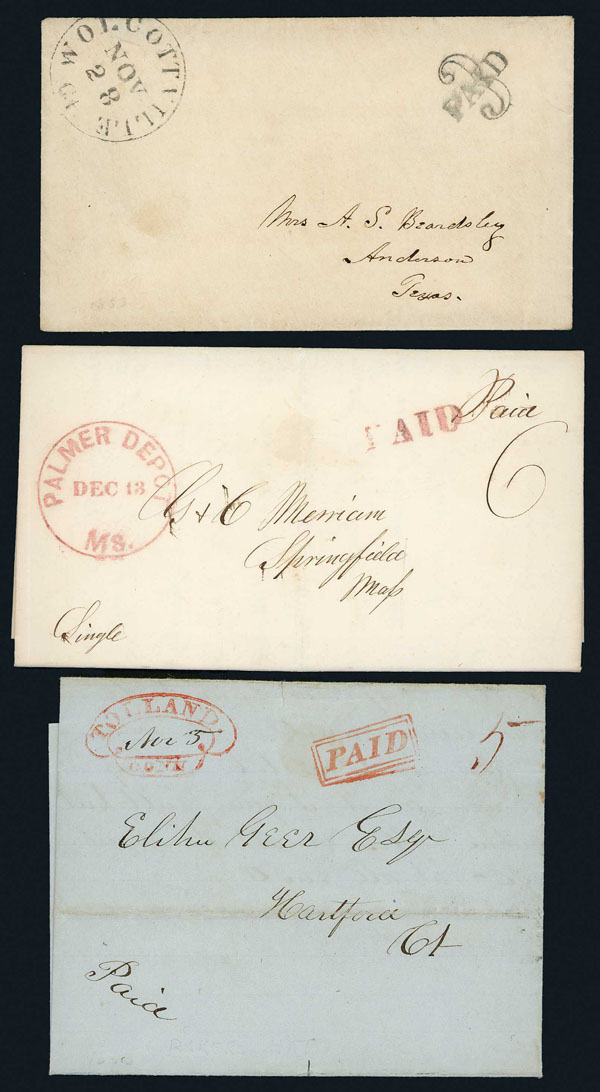 WOLCOTTVILLE Ct
NOV
28
PAID
3
Mrs A. S. Beardsley
Anderson
Texas.
PALMER DEPOT
DEC 13
Ms.
PAID
Paid
6
G & C Merriam
Springfield
Mass
Single
TOLLAND
5
CONN
PAID
5
Elihu Geer Esqr
Hartford
Ct
Paid